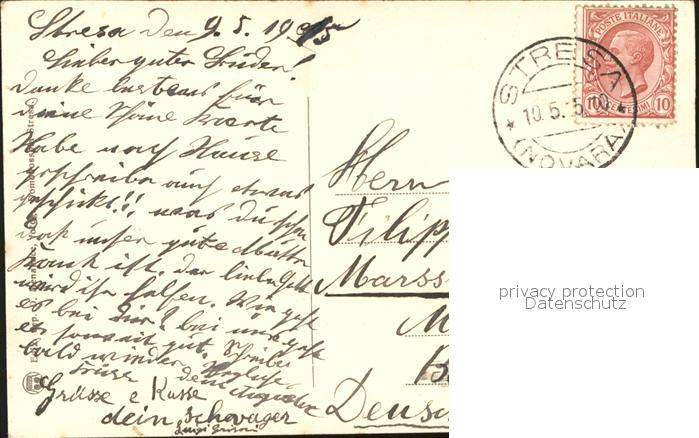 Stresa den 9. 5. 19
Lieber guter Bruder!
Danke bestens für
deine schöne Karte
Habe nach Hause
geschrieben auch etwas
geschickt!! was du schon
doch unser gute Mutter
krank ist. Der liebe Gott
wird ihr helfen. Wie geht
es bei dir? bei uns geht
es soweit gut. Schreibe
bald wieder.
Grüsse e Kusse
dein Schwager
Luigi
POSTE ITALIANE
10 CENTESIMI 10
STRESA
10.5.
(NOVARA)
Herrn
Filipp
Marss
M
Deusc
privacy protection
Datenschutz